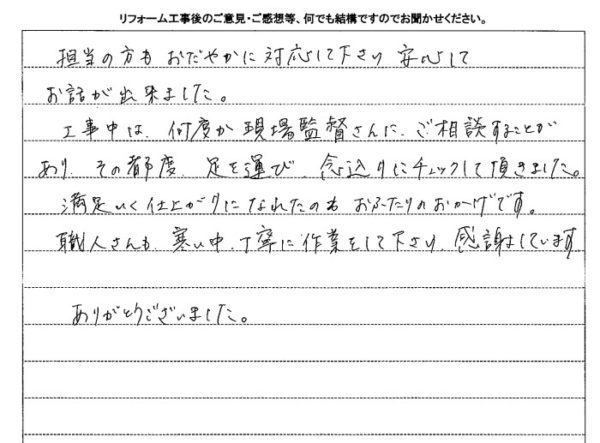 リフォーム工事後のご意見・ご感想等、何でも結構ですのでお聞かせください。
担当の方も おだやかに 対応して下さり 安心して
お話が出来ました。
工事中は、何度か現場監督さんに、ご相談することが
あり、その都度、足を運び、念込りにチェックして頂きました。
満足いく仕上がりになれたのも おふたりのおかげです。
職人さんも、寒い中、丁寧に作業をして下さり、感謝しています
ありがとうございました。